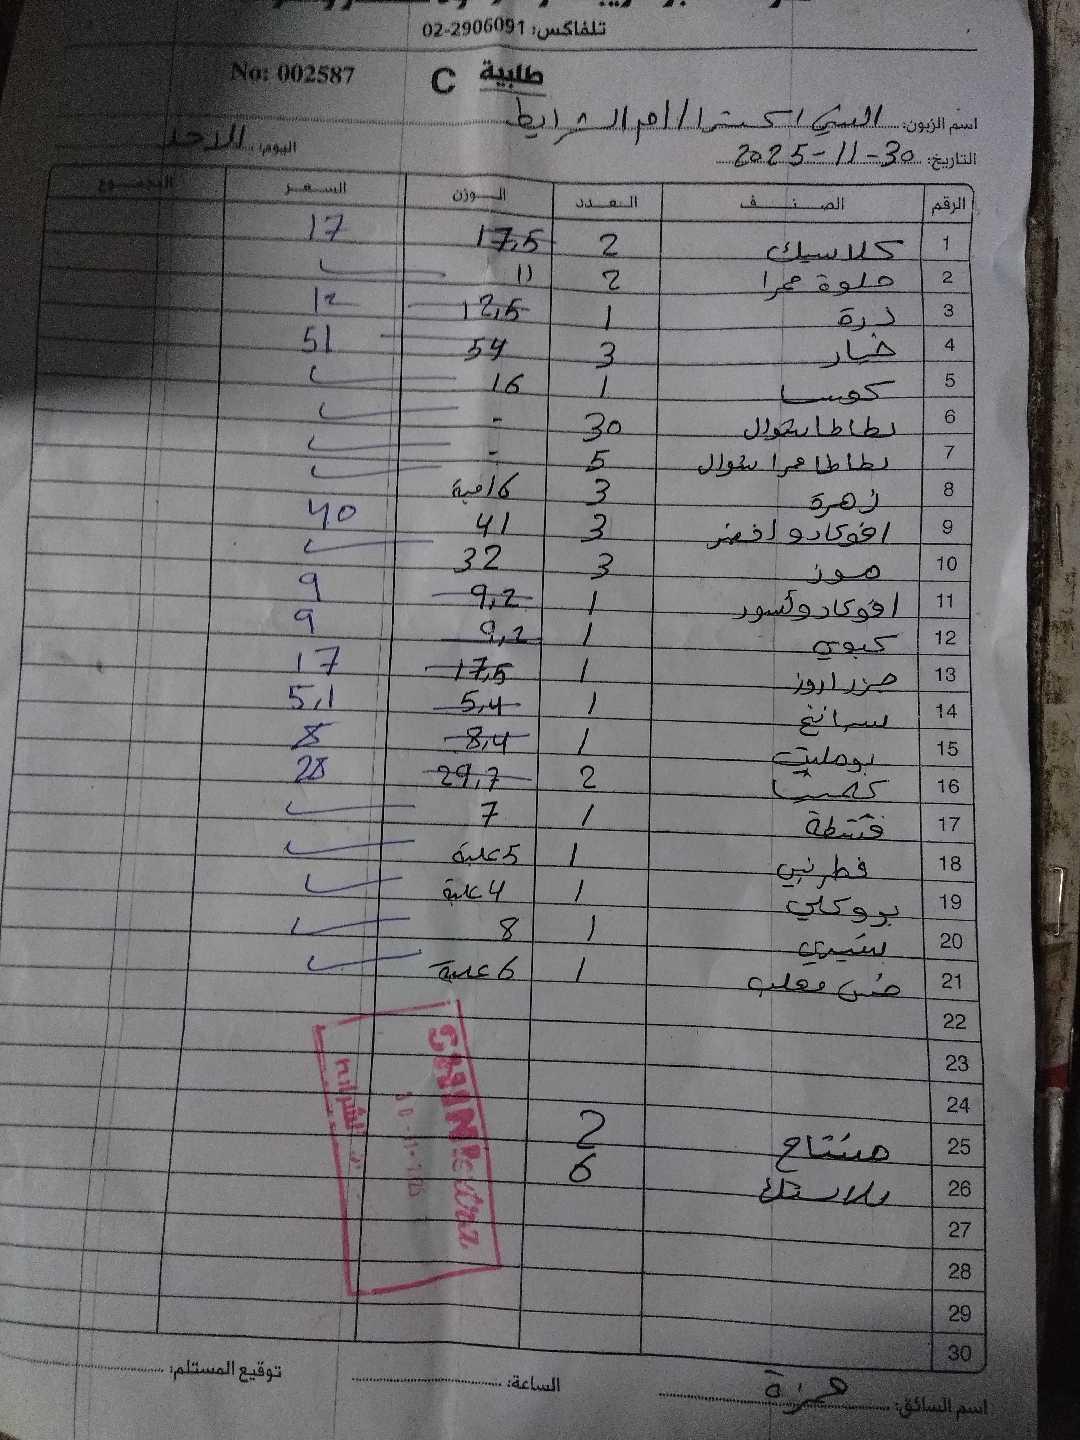 تلفاكس: 02-2906091
No: 002587 C طلبية
اسم الزبون: السني اكسترا / ام الشرايط
التاريخ: 30-11-2025 اليوم: الاحد
الرقم الصنف العدد الوزن السعر المجموع
1 كلاسيك 2 17,5 17
2 حلوة حمرا 2 11
3 ذرة 1 12,5 12
4 خيار 3 54 51
5 كوسا 1 16
6 بطاطا شوال 30 -
7 بطاطا حمرا شوال 5 -
8 زهرة 3 6 حبة
9 افوكادو اخضر 3 41 40
10 موز 3 32
11 افوكادو 1 9,2 9
12 كيوي 1 9,2 9
13 جزر اروز 1 17,5 17
14 1 5,4 5,1
15 بوملیت 1 8,4 8
16 2 29,7 28
17 قشطة 1 7
18 فطر نبي 1 5 علبة
19 بروكلي 1 4 علبة
20 شيري 1 8
21 خس معلب 1 6 علبة
22
23
24
25 مشتاح 2
26 بلاستك 6
27
28
29
30
اسم السائق: حمزة الساعة: توقيع المستلم: